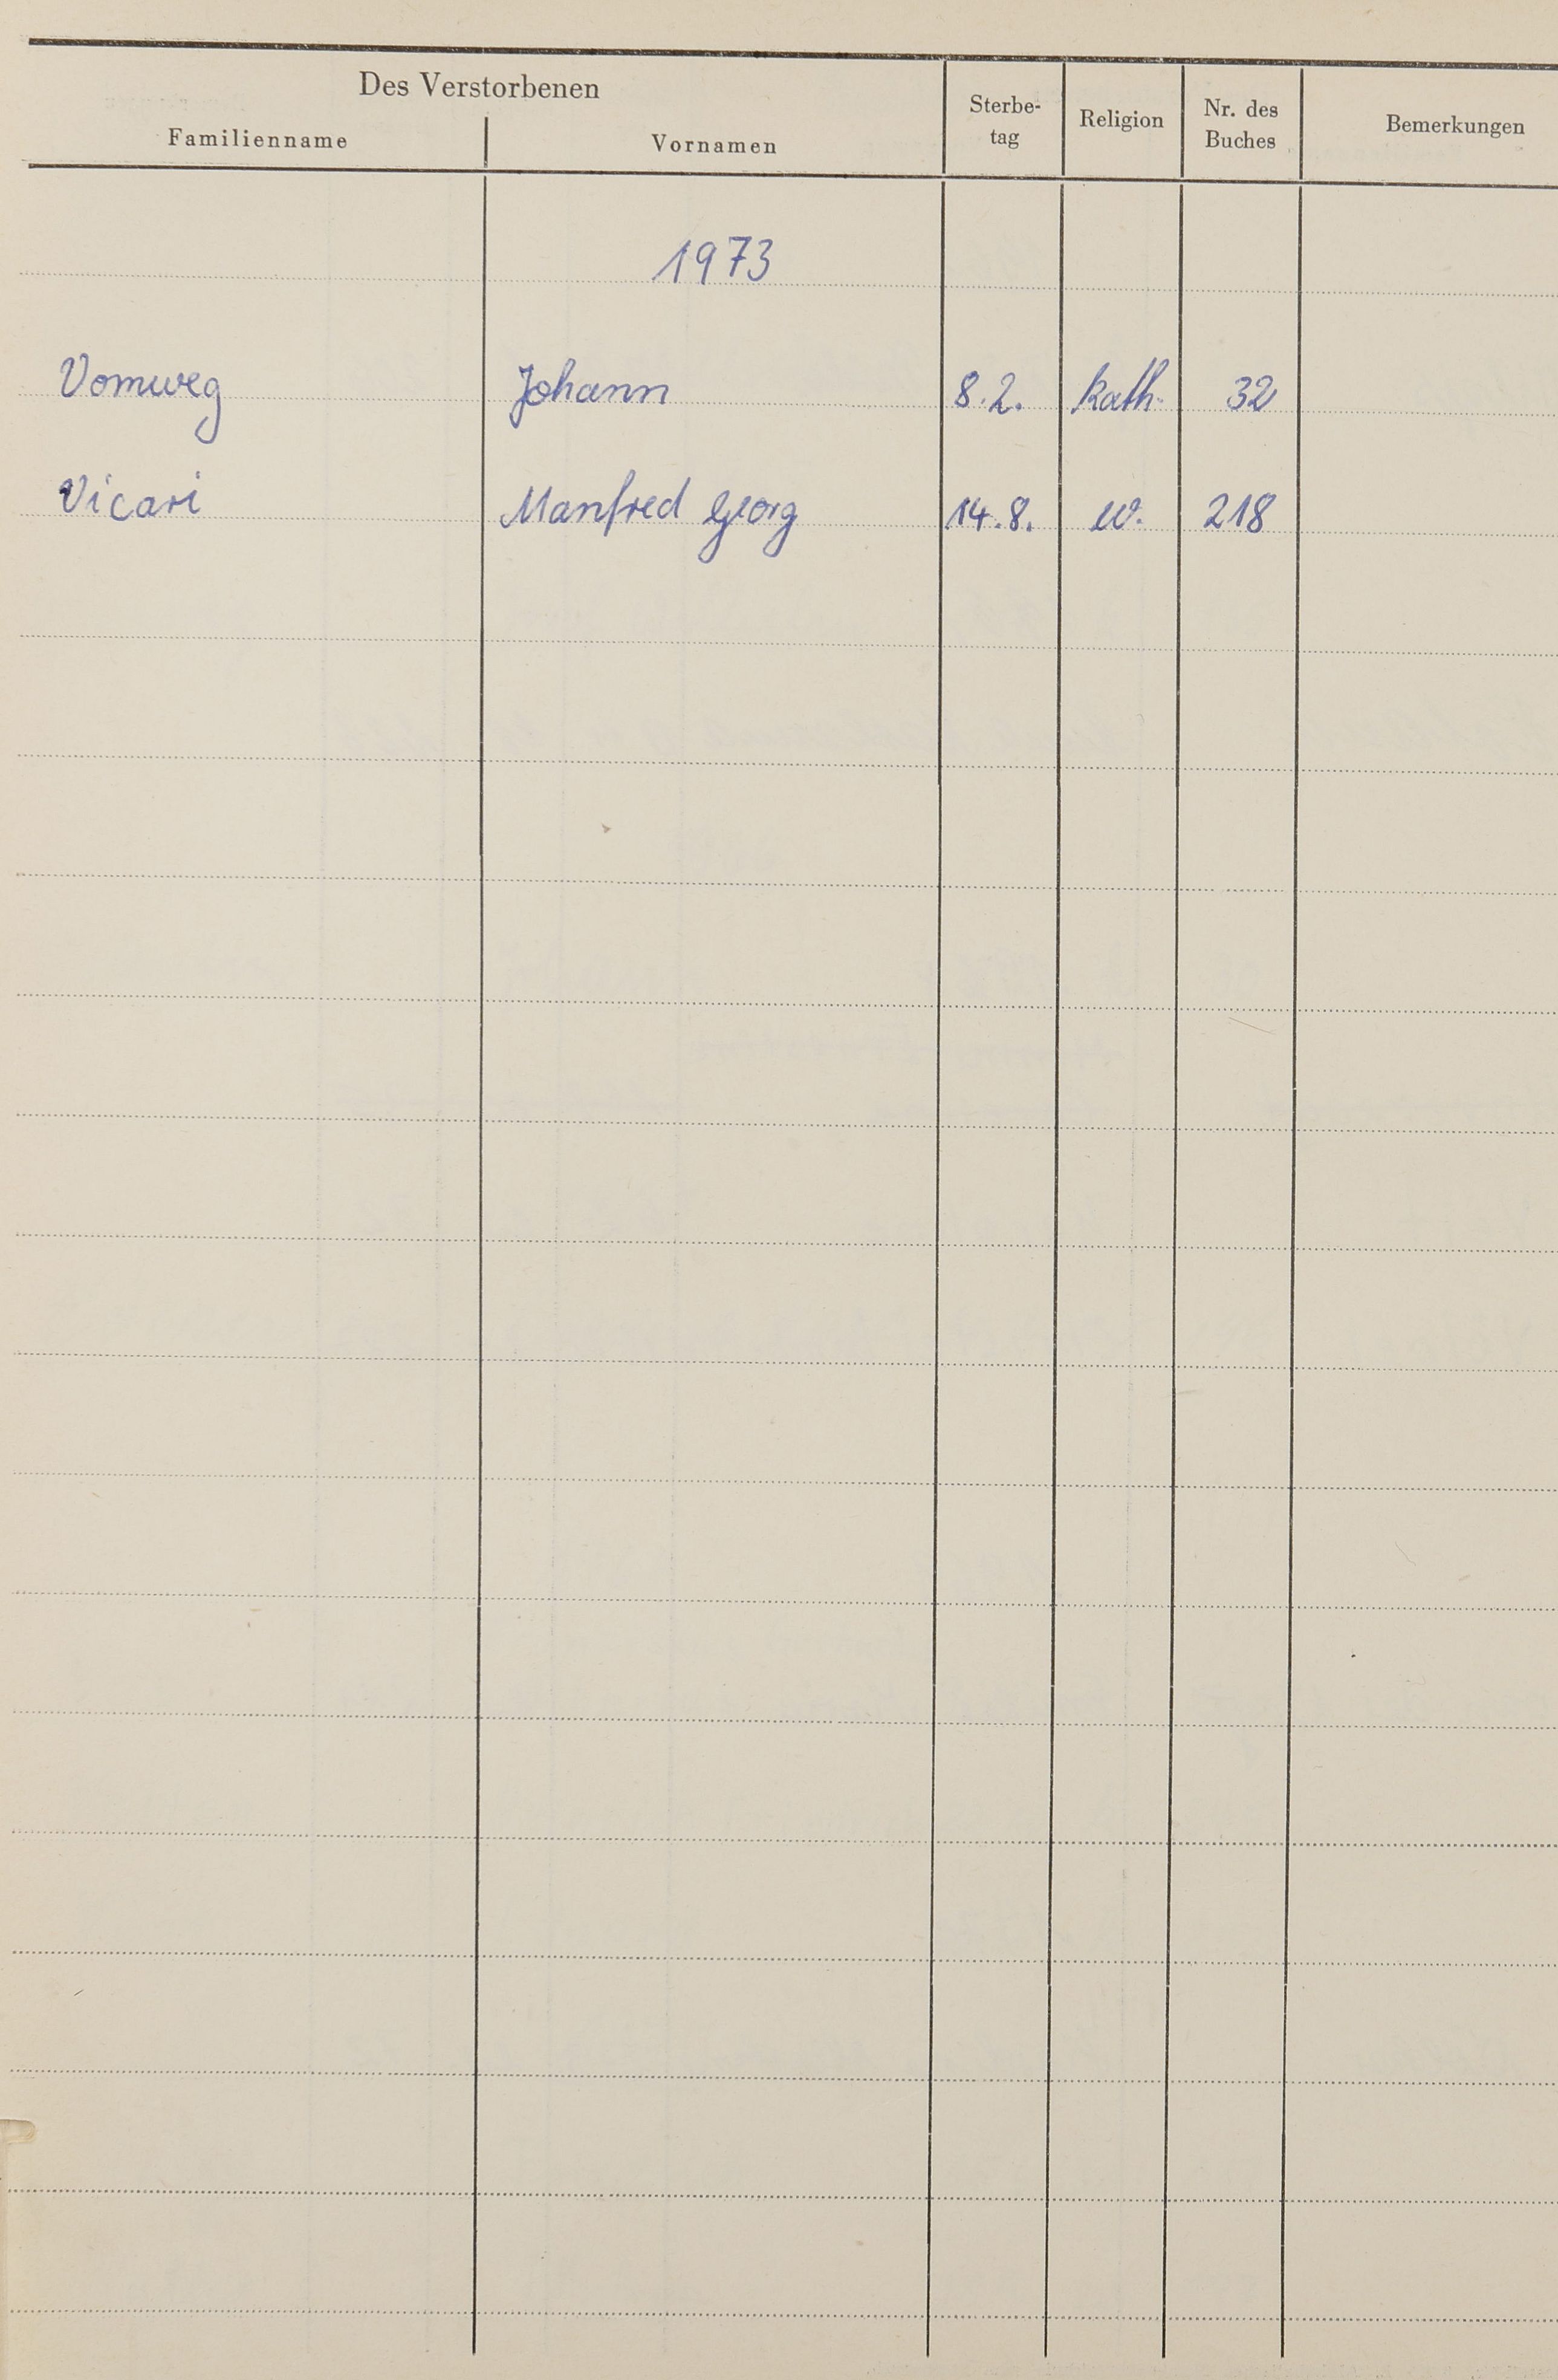 Des Verstorbenen
Familienname Vornamen Sterbe-
tag Religion Nr. des
Buches Bemerkungen
1973
Vomweg Johann 8.2. kath. 32
Vicari Manfred Georg 14.8. ev. 218